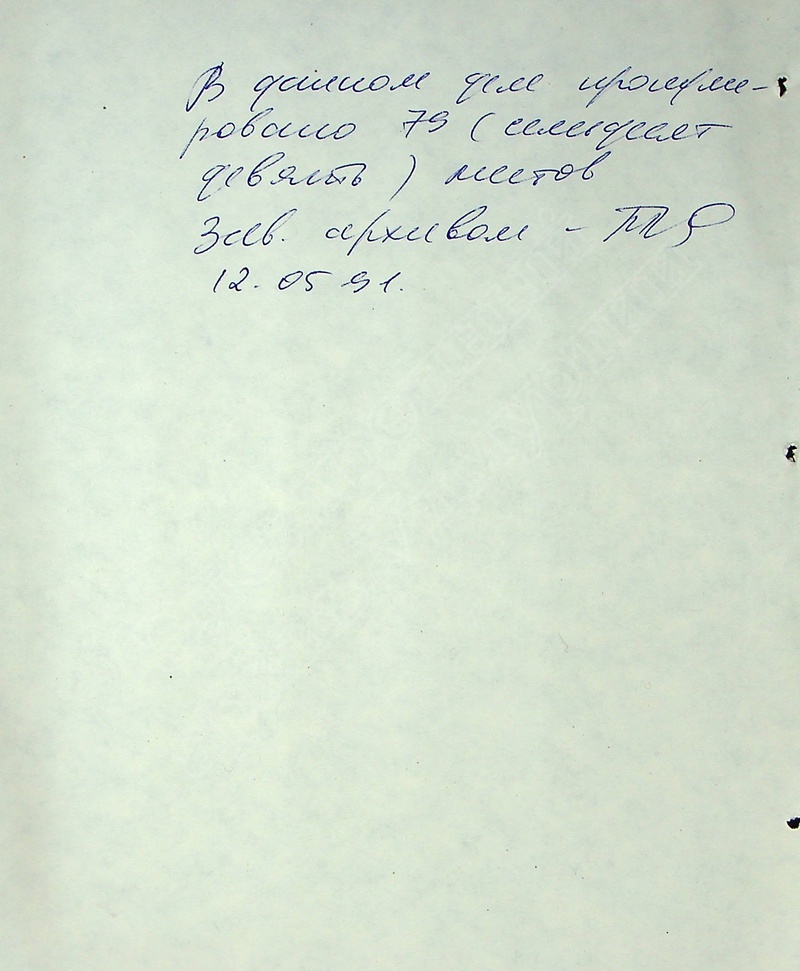 В данном деле пронуме-
ровано 79 (семьдесят
девять) листов
Зав. архивом -
12.05 91.